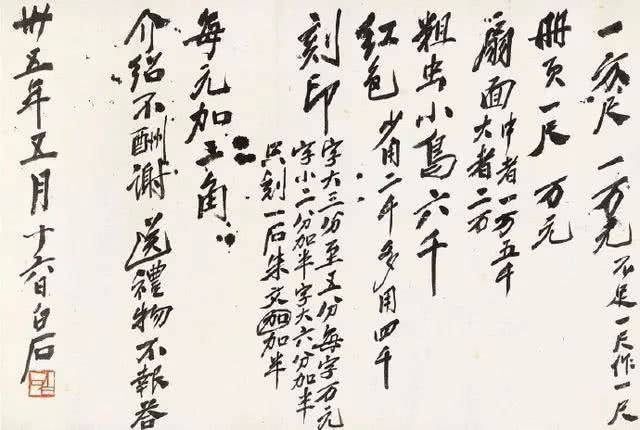 一方尺 一万元 不足一尺作一尺
册页一尺 万元
扇面 中者一万五千
大者二万
粗虫小鳥六千
红色 少用二千多用四千
刻印 字大三分至五分每字万元
字小二分加半字大六分加半
只刻一石朱文加加半
每元加二角
介绍不酬谢 送禮物不報答
卅五年五月十六日白石